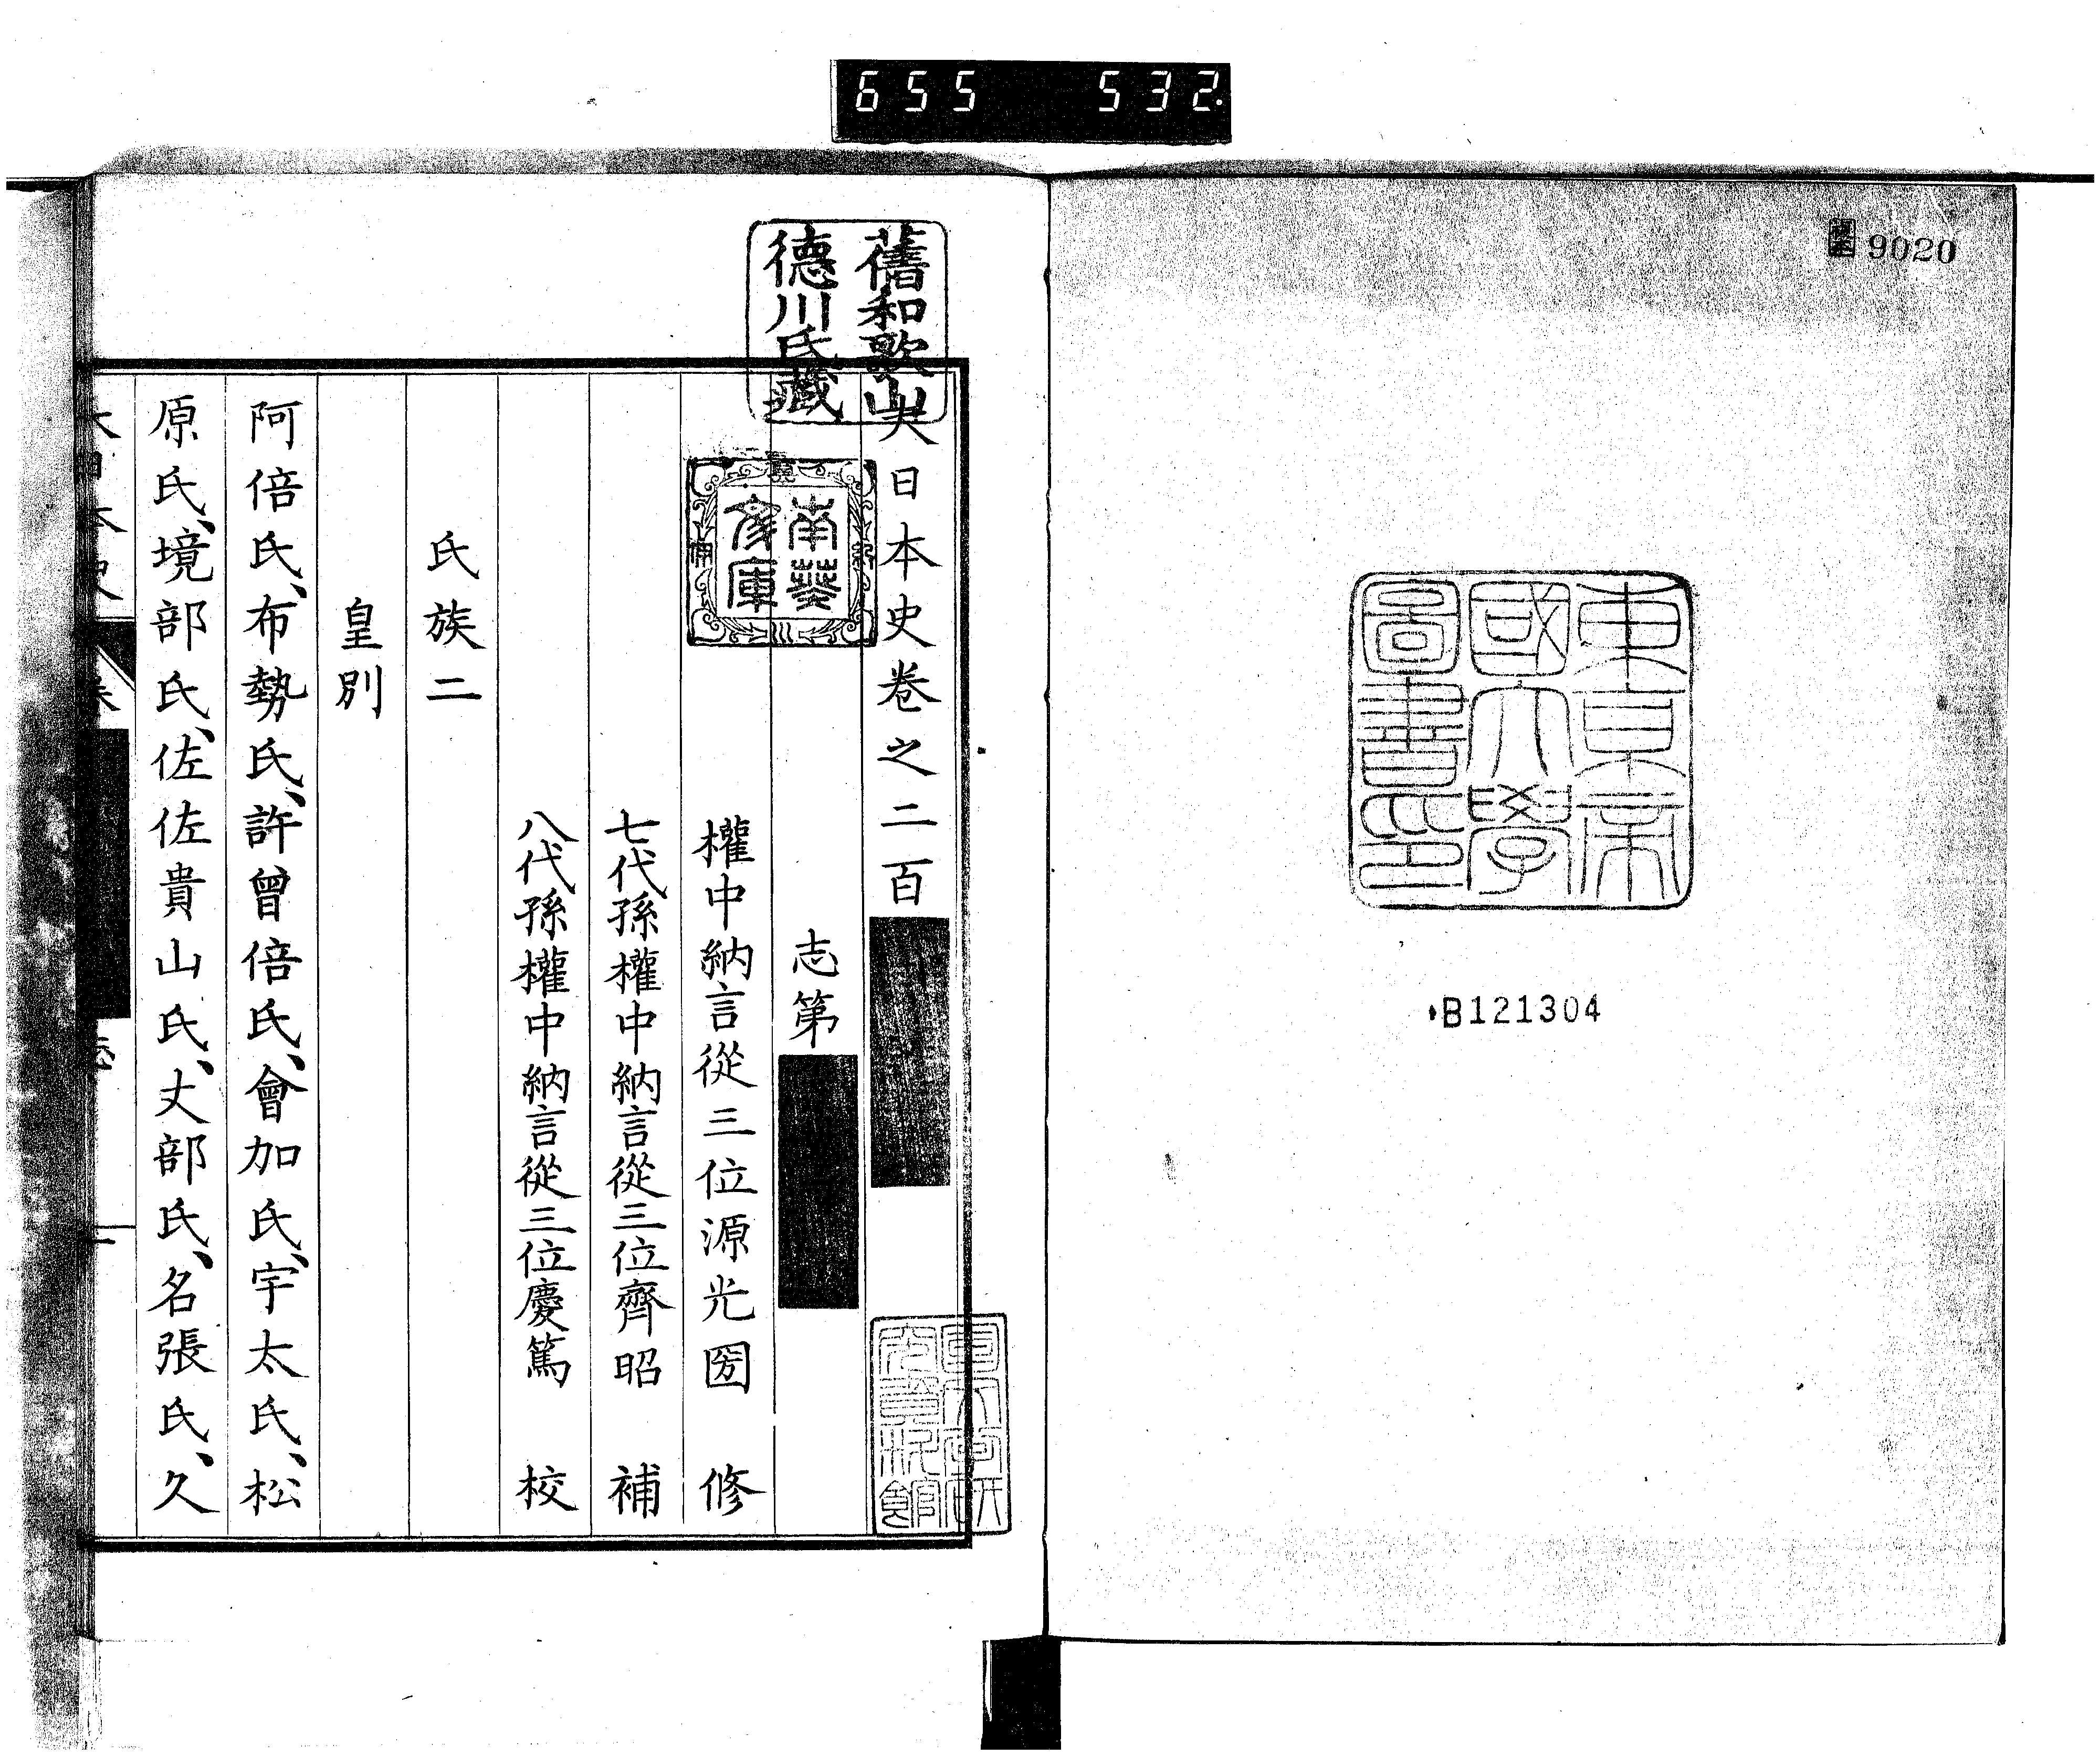 655 532.
9020
東京帝
國大學
圖書印
B121304
舊和歌山
德川氏藏
南葵
文庫
大日本史卷之二百
志第
權中納言從三位源光圀 修
七代孫權中納言從三位齊昭 補
八代孫權中納言從三位慶篤 校
氏族二
皇別
阿倍氏、布勢氏、許曾倍氏、會加氏、宇太氏、松
原氏、境部氏、佐佐貴山氏、丈部氏、名張氏、久
大日本史